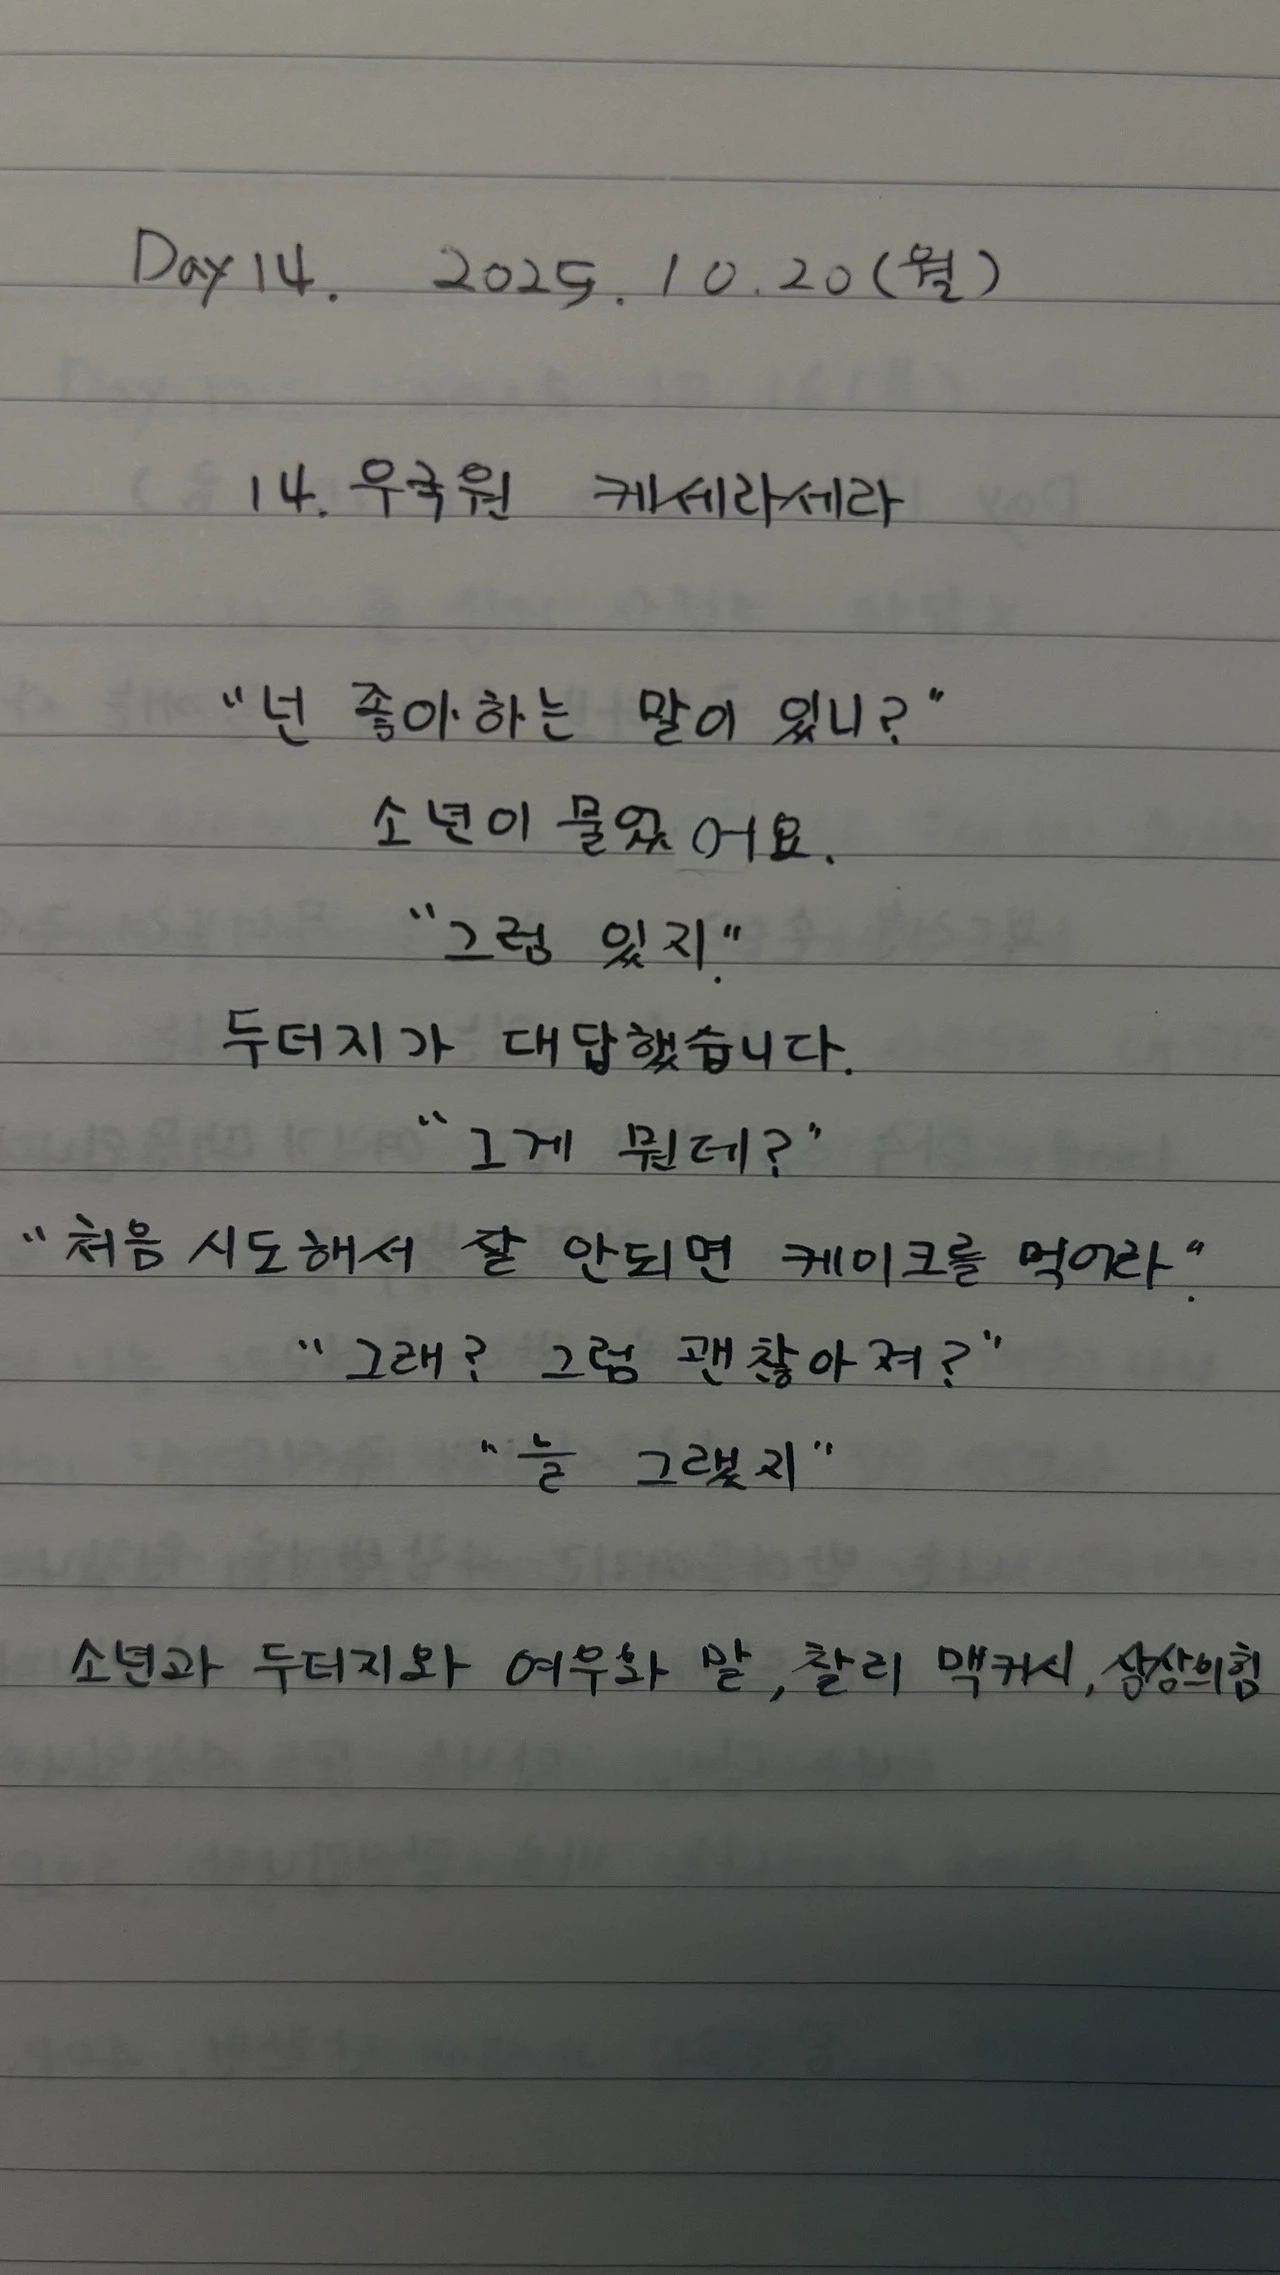 Day 14. 2025. 10. 20 (월)
14. 우국원 케세라세라
"넌 좋아하는 말이 있니?"
소년이 물었어요.
"그럼 있지."
두더지가 대답했습니다.
"그게 뭔데?"
"처음 시도해서 잘 안되면 케이크를 먹어라."
"그래? 그럼 괜찮아져?"
"늘 그랬지"
소년과 두더지와 여우와 말, 찰리 맥커시, 상상의힘